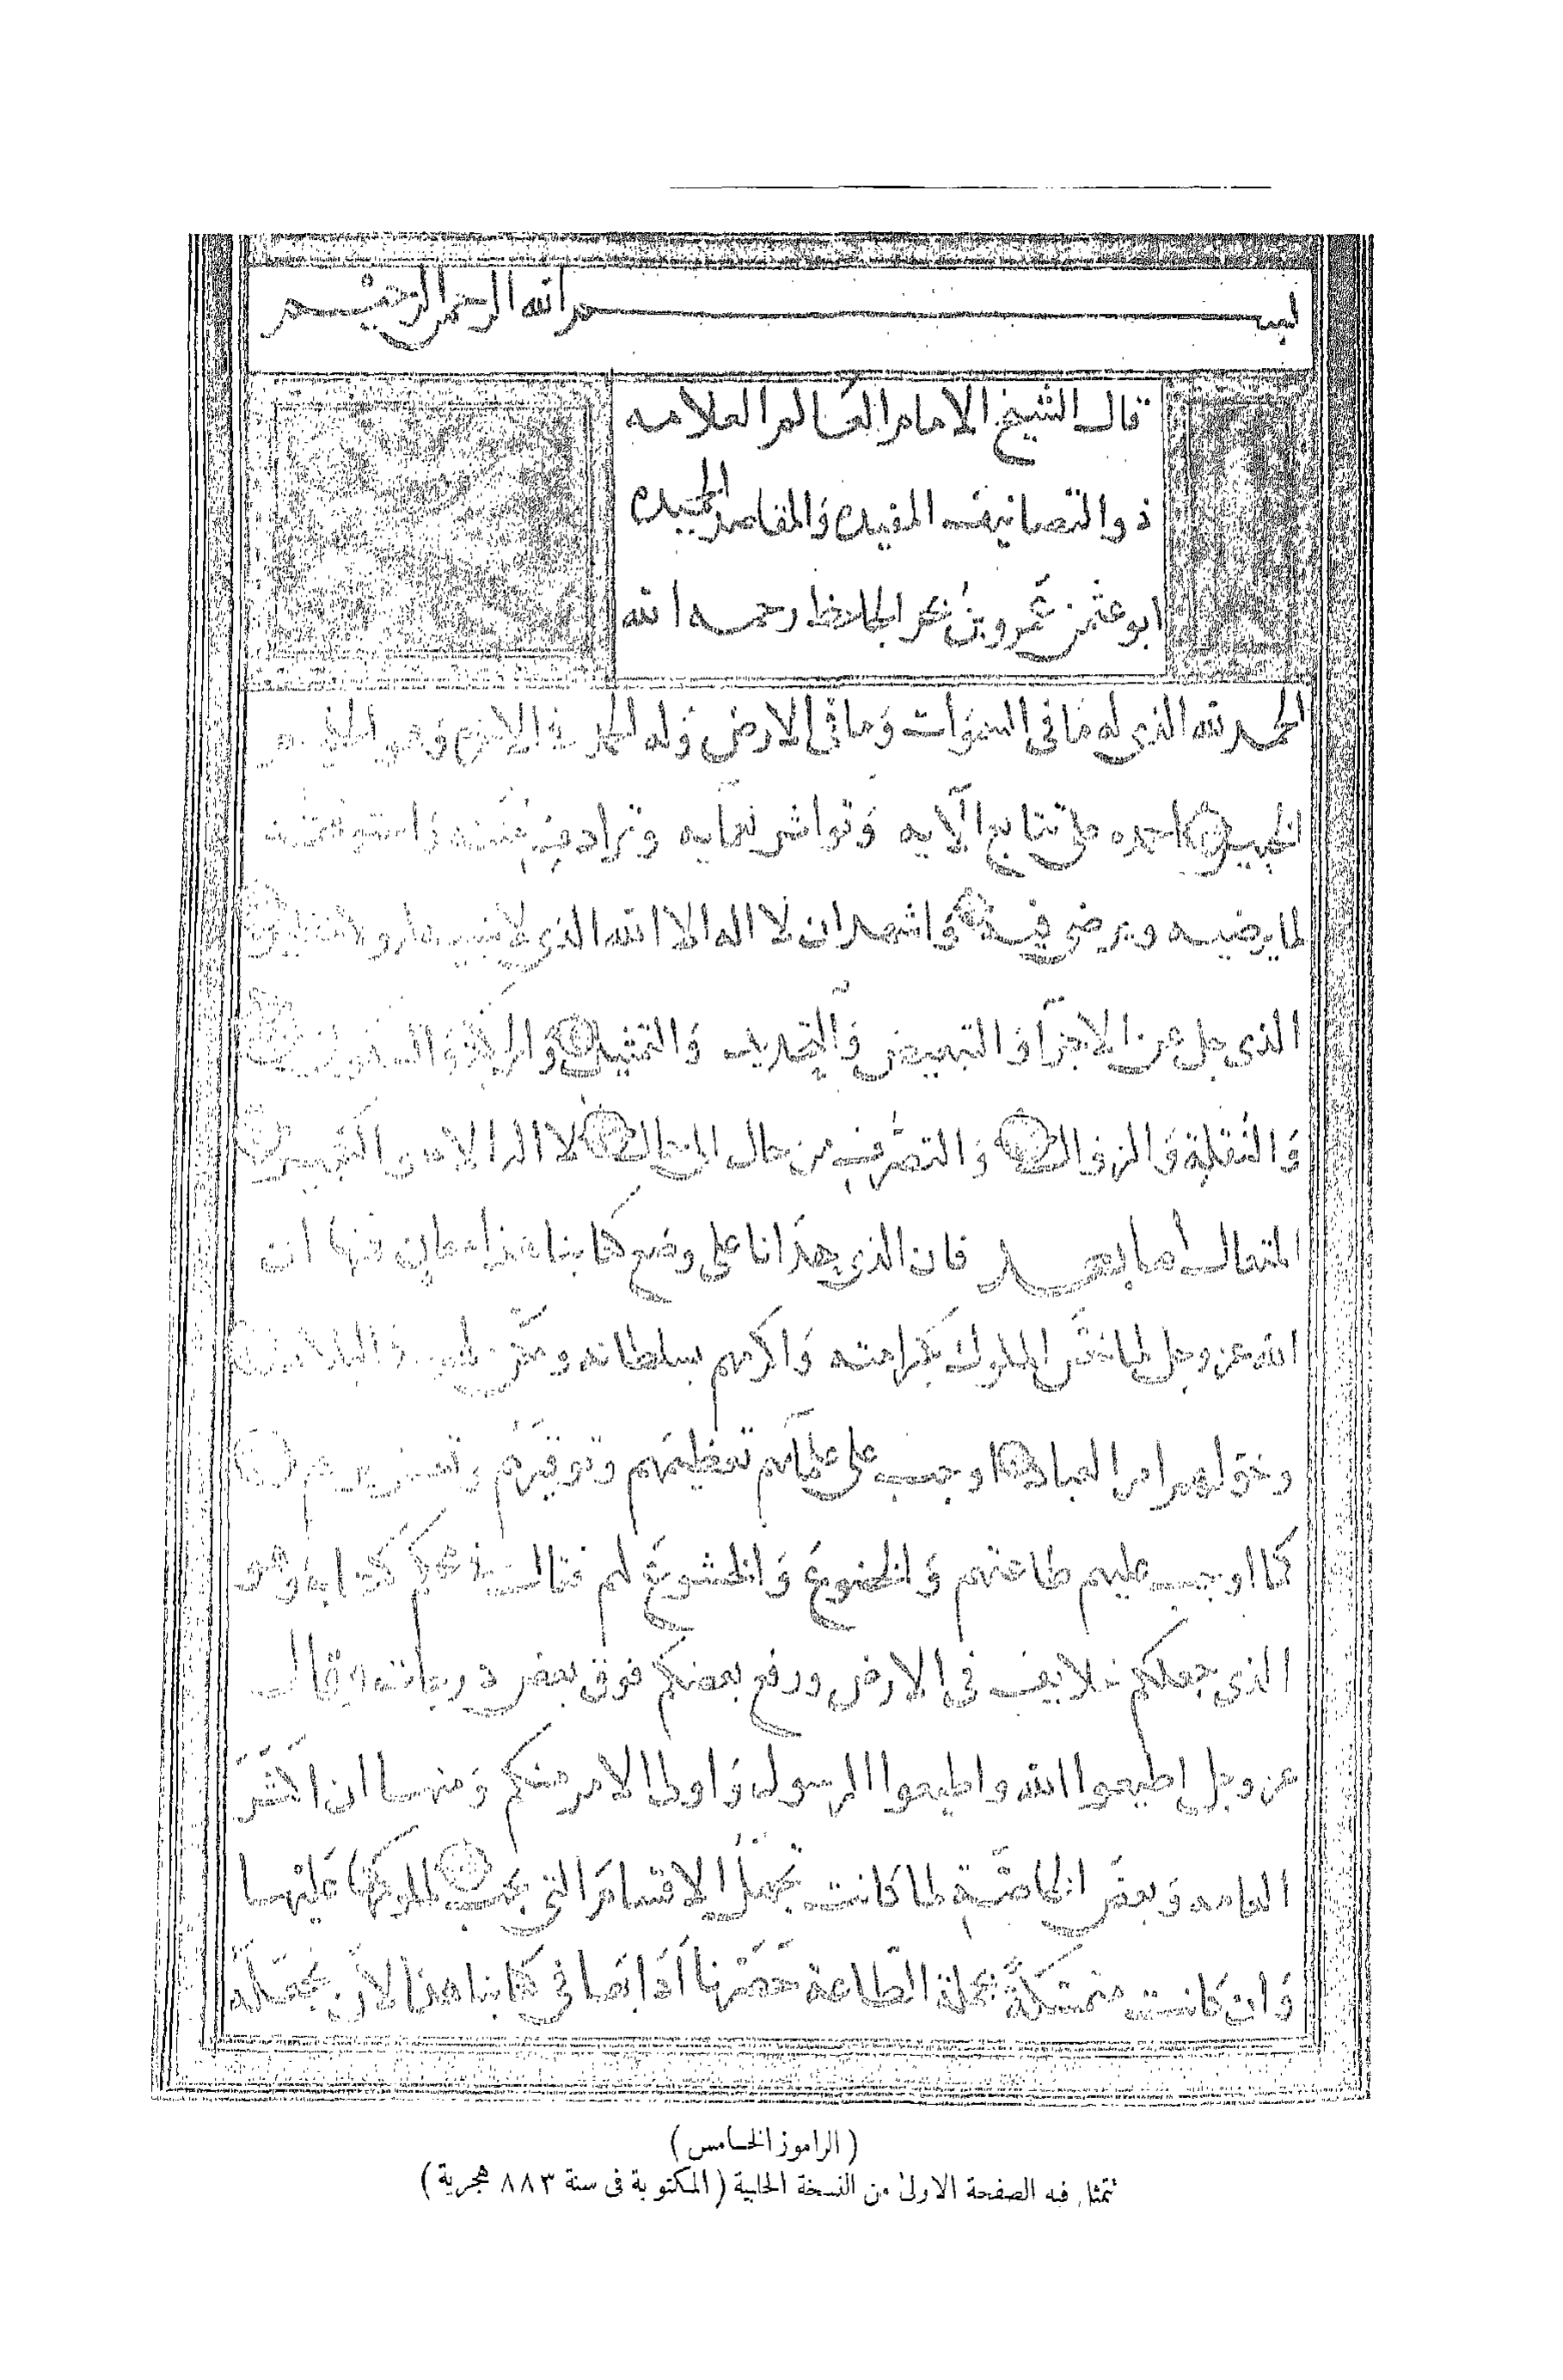 بسم الله الرحمن الرحيم
قال الشيخ الامام العالم العلامه
ذو التصانيف المفيده والمقاصد الحميده
ابو عثمن عمرو بن بحر الجاحظ رحمه الله
الحمد لله الذى له ما فى السموات وما فى الارض وله الحمد فى الاخرة وهو الحكيم
الخبير احمده على تتابع آلايه وتواتر نعمايه وترادف مننه
لما يرضيه ويرضى فيه واشهد ان لا اله الا الله الذى لا شبيه له ولا نظير
الذى جل عن الاجزآ والتبعيض والتحديد والتمثيل والحركة والسكون
والنقلة والزوال والتصرف من حال الى حال لا اله الا هو الكبير
المتعال اما بعد فان الذى هدانا على وضع كتابنا هذا معان منها ان
الله عز وجل لما خص الملوك بكرامته واكرمهم بسلطانه ومكن لهم فى البلاد
وخولهم امر العباد اوجب على علمآئهم تعظيمهم وتوقيرهم وتعزيزهم
كما اوجب عليهم طاعتهم والخضوع والخشوع لهم فقال فى محكم كتابه وهو
الذى جعلكم خلايف فى الارض ورفع بعضكم فوق بعض درجات وقال
عز وجل اطيعوا الله واطيعوا الرسول واولى الامر منكم ومنها ان اكثر
العامه وبعض الخاصة لما كانت تجهل الاقسام التى تجب لملوكها عليها
وان كانت متمسكة بجملة الطاعة حصرنا آدابها فى كتابنا هذا لأن نجعله
( الراموز الخامس )
تتمثل فيه الصفحة الاولى من النسخة الحلبية ( المكتوبة فى سنة ٨٨٣ هجرية )